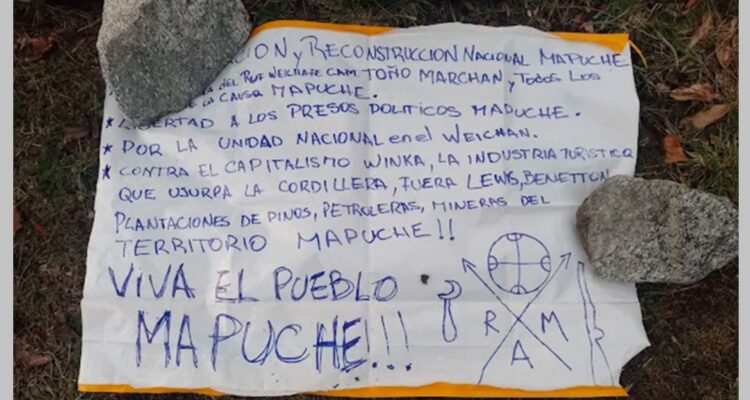 ACION y RECONSTRUCCION NACIONAL MAPUCHE
DEL WEICHAFE CAM TOÑO MARCHAN, y TODOS LOS
DE LA CAUSA MAPUCHE.
* LIBERTAD A LOS PRESOS POLITICOS MAPUCHE.
* POR LA UNIDAD NACIONAL en el WEICHAN.
* CONTRA EL CAPITALISMO WINKA, LA INDUSTRIA TURISTICA
QUE USURPA LA CORDILLERA, FUERA LEWIS, BENETTON
PLANTACIONES DE PINOS, PETROLERAS, MINERAS DEL
TERRITORIO MAPUCHE!!
VIVA EL PUEBLO
MAPUCHE!!!
R A M